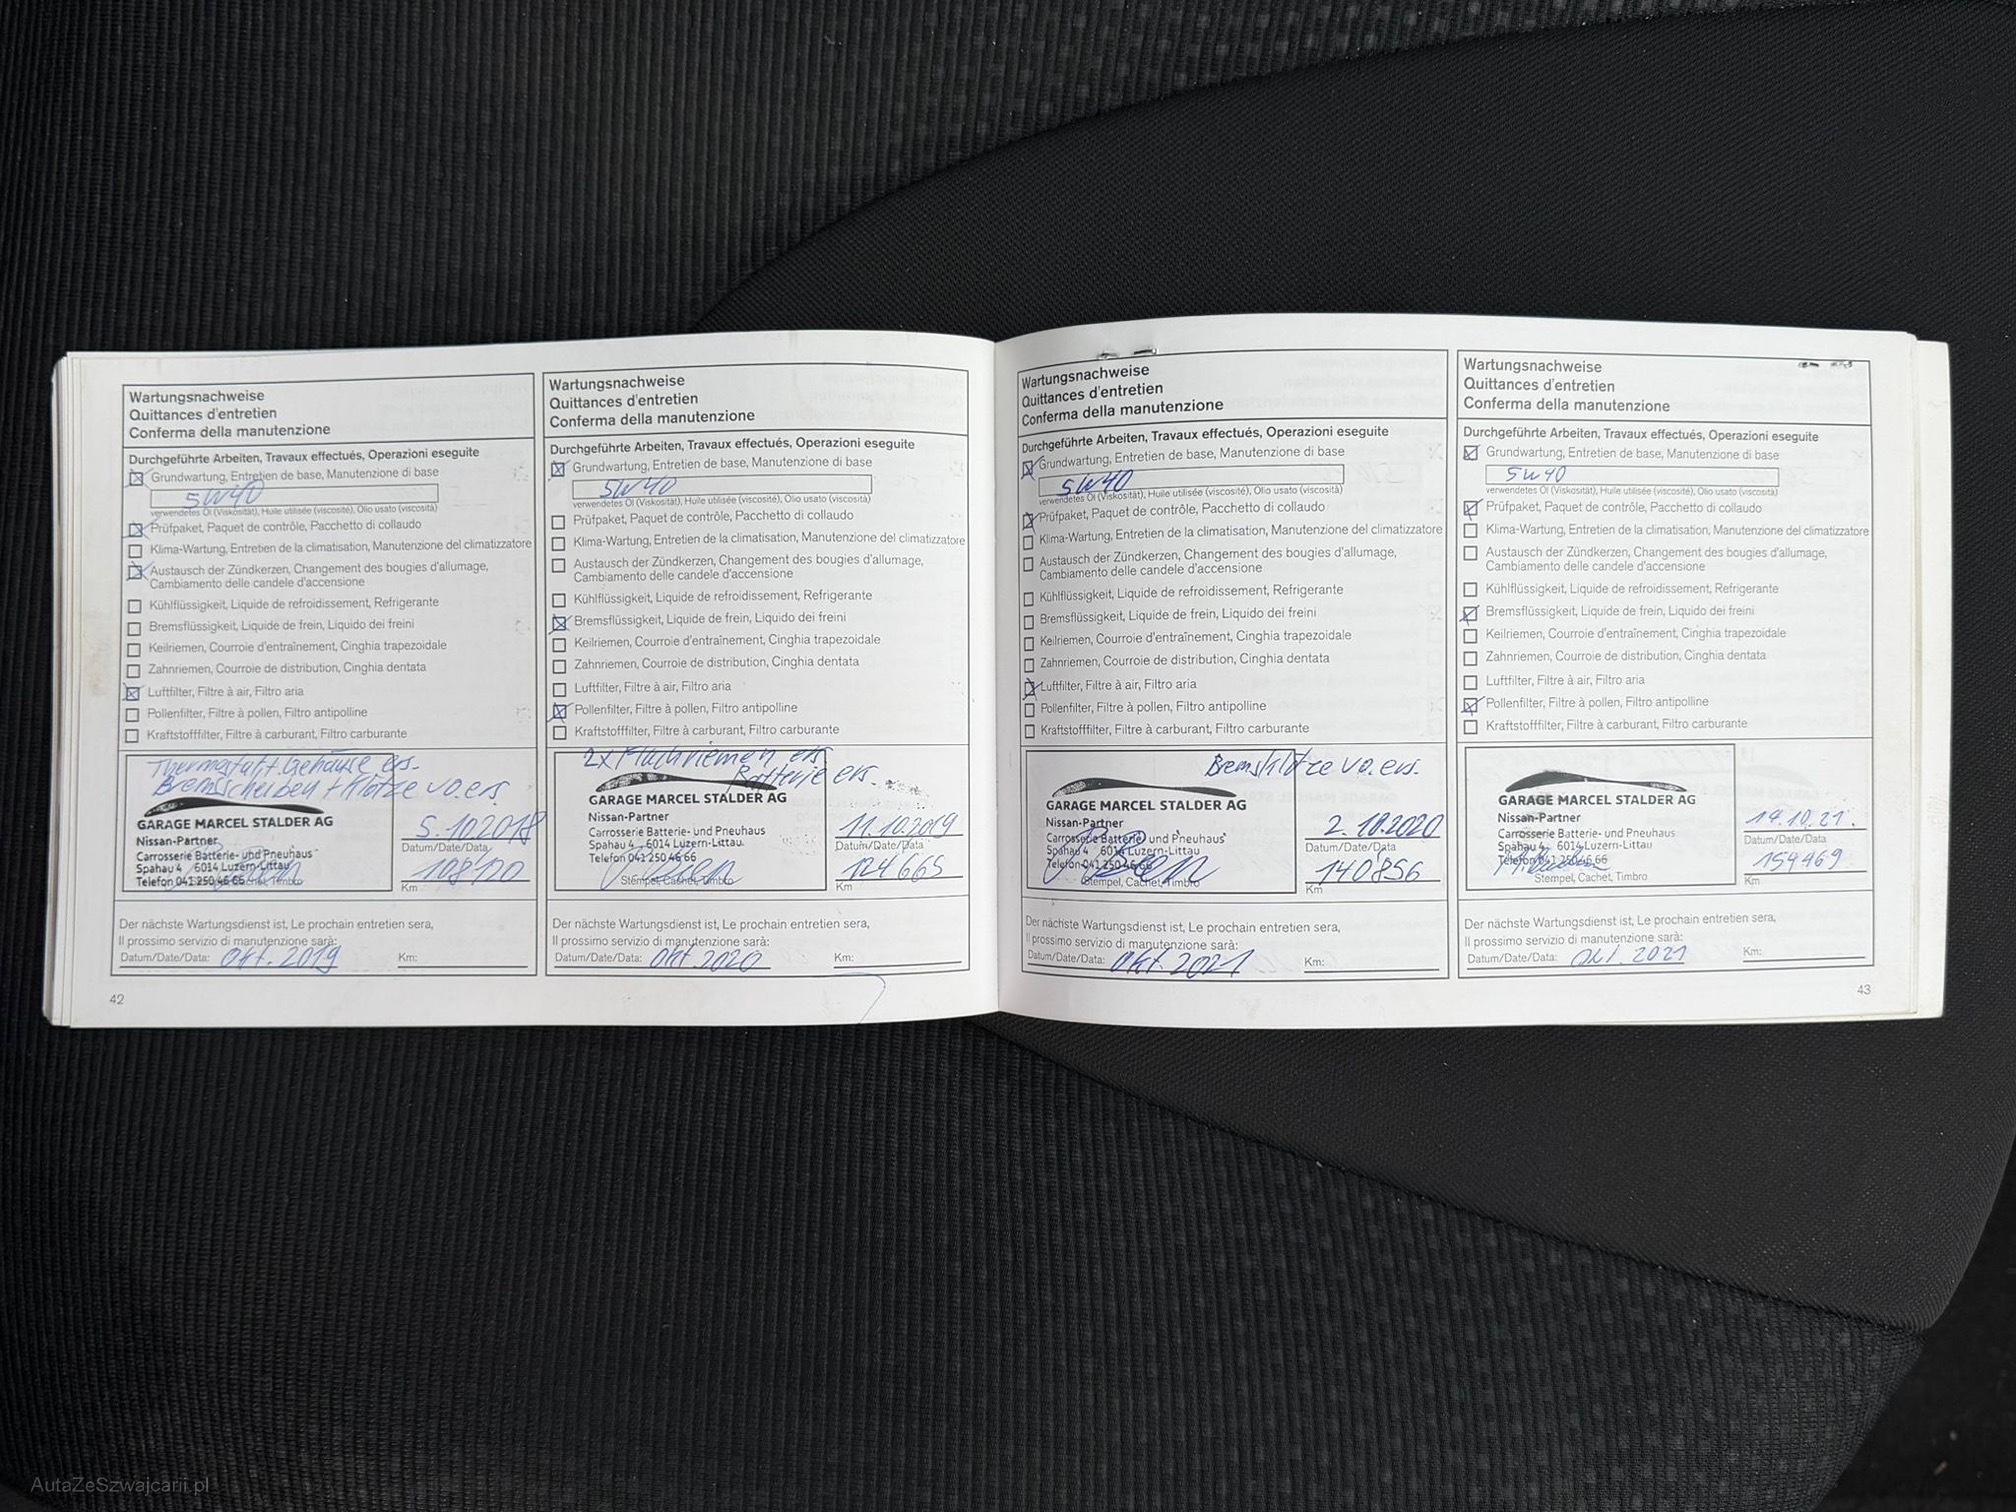 Wartungsnachweise
Quittances d'entretien
Conferma della manutenzione
Durchgeführte Arbeiten, Travaux effectués, Operazioni eseguite
Grundwartung, Entretien de base, Manutenzione di base
5W40
verwendetes Öl (Viskosität), Huile utilisée (viscosité), Olio usato (viscosità)
Prüfpaket, Paquet de contrôle, Pacchetto di collaudo
Klima-Wartung, Entretien de la climatisation, Manutenzione del climatizzatore
Austausch der Zündkerzen, Changement des bougies d'allumage,
Cambiamento delle candele d'accensione
Kühlflüssigkeit, Liquide de refroidissement, Refrigerante
Bremsflüssigkeit, Liquide de frein, Liquido dei freini
Keilriemen, Courroie d'entraînement, Cinghia trapezoidale
Zahnriemen, Courroie de distribution, Cinghia dentata
Luftfilter, Filtre à air, Filtro aria
Pollenfilter, Filtre à pollen, Filtro antipolline
Kraftstofffilter, Filtre à carburant, Filtro carburante
Thermostat + Gehäuse ers.
Bremsscheiben + Klötze vo. ers.
GARAGE MARCEL STALDER AG
Nissan-Partner
Carrosserie Batterie- und Pneuhaus
Spahau 4 6014 Luzern-Littau
Telefon 041 250 46 66
5.10.2018
Datum/Date/Data
108'120
Km
Der nächste Wartungsdienst ist, Le prochain entretien sera,
Il prossimo servizio di manutenzione sarà:
Datum/Date/Data: Okt. 2019 Km:
42
Wartungsnachweise
Quittances d'entretien
Conferma della manutenzione
Durchgeführte Arbeiten, Travaux effectués, Operazioni eseguite
Grundwartung, Entretien de base, Manutenzione di base
5W40
verwendetes Öl (Viskosität), Huile utilisée (viscosité), Olio usato (viscosità)
Prüfpaket, Paquet de contrôle, Pacchetto di collaudo
Klima-Wartung, Entretien de la climatisation, Manutenzione del climatizzatore
Austausch der Zündkerzen, Changement des bougies d'allumage,
Cambiamento delle candele d'accensione
Kühlflüssigkeit, Liquide de refroidissement, Refrigerante
Bremsflüssigkeit, Liquide de frein, Liquido dei freini
Keilriemen, Courroie d'entraînement, Cinghia trapezoidale
Zahnriemen, Courroie de distribution, Cinghia dentata
Luftfilter, Filtre à air, Filtro aria
Pollenfilter, Filtre à pollen, Filtro antipolline
Kraftstofffilter, Filtre à carburant, Filtro carburante
2x Flachriemen ers.
Batterie ers.
GARAGE MARCEL STALDER AG
Nissan-Partner
Carrosserie Batterie- und Pneuhaus
Spahau 4 6014 Luzern-Littau
Telefon 041 250 46 66
Stempel, Cachet, Timbro
11.10.2019
Datum/Date/Data
124'665
Km
Der nächste Wartungsdienst ist, Le prochain entretien sera,
Il prossimo servizio di manutenzione sarà:
Datum/Date/Data: Okt. 2020 Km:
Wartungsnachweise
Quittances d'entretien
Conferma della manutenzione
Durchgeführte Arbeiten, Travaux effectués, Operazioni eseguite
Grundwartung, Entretien de base, Manutenzione di base
5W40
verwendetes Öl (Viskosität), Huile utilisée (viscosité), Olio usato (viscosità)
Prüfpaket, Paquet de contrôle, Pacchetto di collaudo
Klima-Wartung, Entretien de la climatisation, Manutenzione del climatizzatore
Austausch der Zündkerzen, Changement des bougies d'allumage,
Cambiamento delle candele d'accensione
Kühlflüssigkeit, Liquide de refroidissement, Refrigerante
Bremsflüssigkeit, Liquide de frein, Liquido dei freini
Keilriemen, Courroie d'entraînement, Cinghia trapezoidale
Zahnriemen, Courroie de distribution, Cinghia dentata
Luftfilter, Filtre à air, Filtro aria
Pollenfilter, Filtre à pollen, Filtro antipolline
Kraftstofffilter, Filtre à carburant, Filtro carburante
Bremsklötze vo. ers.
GARAGE MARCEL STALDER AG
Nissan-Partner
Carrosserie Batterie- und Pneuhaus
Spahau 4 6014 Luzern-Littau
Telefon 041 250 46 66
Stempel, Cachet, Timbro
2.10.2020
Datum/Date/Data
140'856
Km
Der nächste Wartungsdienst ist, Le prochain entretien sera,
Il prossimo servizio di manutenzione sarà:
Datum/Date/Data: Okt. 2021 Km:
Wartungsnachweise
Quittances d'entretien
Conferma della manutenzione
Durchgeführte Arbeiten, Travaux effectués, Operazioni eseguite
Grundwartung, Entretien de base, Manutenzione di base
5W40
verwendetes Öl (Viskosität), Huile utilisée (viscosité), Olio usato (viscosità)
Prüfpaket, Paquet de contrôle, Pacchetto di collaudo
Klima-Wartung, Entretien de la climatisation, Manutenzione del climatizzatore
Austausch der Zündkerzen, Changement des bougies d'allumage,
Cambiamento delle candele d'accensione
Kühlflüssigkeit, Liquide de refroidissement, Refrigerante
Bremsflüssigkeit, Liquide de frein, Liquido dei freini
Keilriemen, Courroie d'entraînement, Cinghia trapezoidale
Zahnriemen, Courroie de distribution, Cinghia dentata
Luftfilter, Filtre à air, Filtro aria
Pollenfilter, Filtre à pollen, Filtro antipolline
Kraftstofffilter, Filtre à carburant, Filtro carburante
GARAGE MARCEL STALDER AG
Nissan-Partner
Carrosserie Batterie- und Pneuhaus
Spahau 4 6014 Luzern-Littau
Telefon 041 250 46 66
Stempel, Cachet, Timbro
Datum/Date/Data
154469
Km
Der nächste Wartungsdienst ist, Le prochain entretien sera,
Il prossimo servizio di manutenzione sarà:
Datum/Date/Data: Okt 2021 Km:
43
AutaZeSzwajcarii.pl